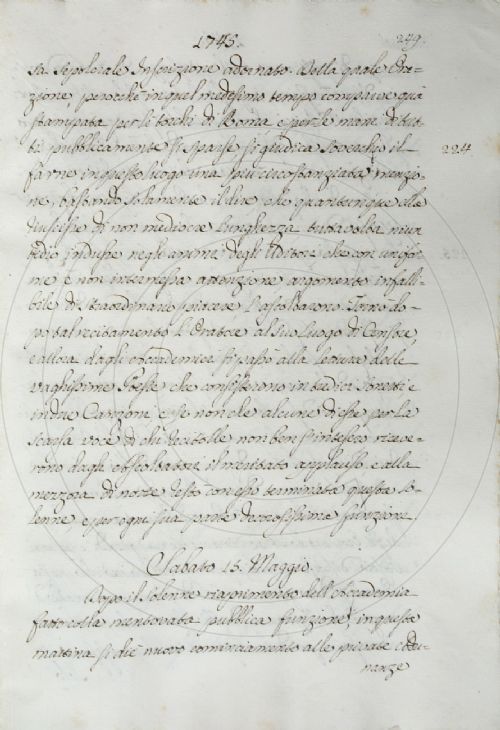 1743. 249.
sa Sepolcrale Inscrizione adornato. Della quale Ora=
zione, perochè in quel medesimo tempo comparve quà
stampata per li torchi di Roma, e per le mani di tut=
ti pubblicamente si sparse, si giudica soverchio il 224
farne in questo luogo una più circostanziata menzio=
ne, bastando solamente il dire che quantunque ella
riuscisse di non mediocre lunghezza tuttavolta niun
tedio indusse negli animi degli Uditori che con unifor=
me e non interrotta attenzione argomento infalli=
bile di straordinario piacere l'ascoltarono. Tornò do=
po tal recitamento l'Oratore al suo luogo di Censore,
e allora dagli Accademici si passò alla lettura delle
vaghissime Poesie che consisterono in Sonetti e
in due Canzoni, e se non che alcune d'esse per la
scarsa voce di chi recitolle non ben s'intesero riceve=
rono dagli Ascoltatori il meritato applauso e alla
mezzora di notte restò con esse terminata questa so=
lenne, e per ogni sua parte decorosissima funzione.
Sabato 15. Maggio.
Dopo il solenne riaprimento dell'Accademia
fatto colla mentovata pubblica funzione, in questa
mattina si diè nuovo cominciamento alle private Adu=
nanze